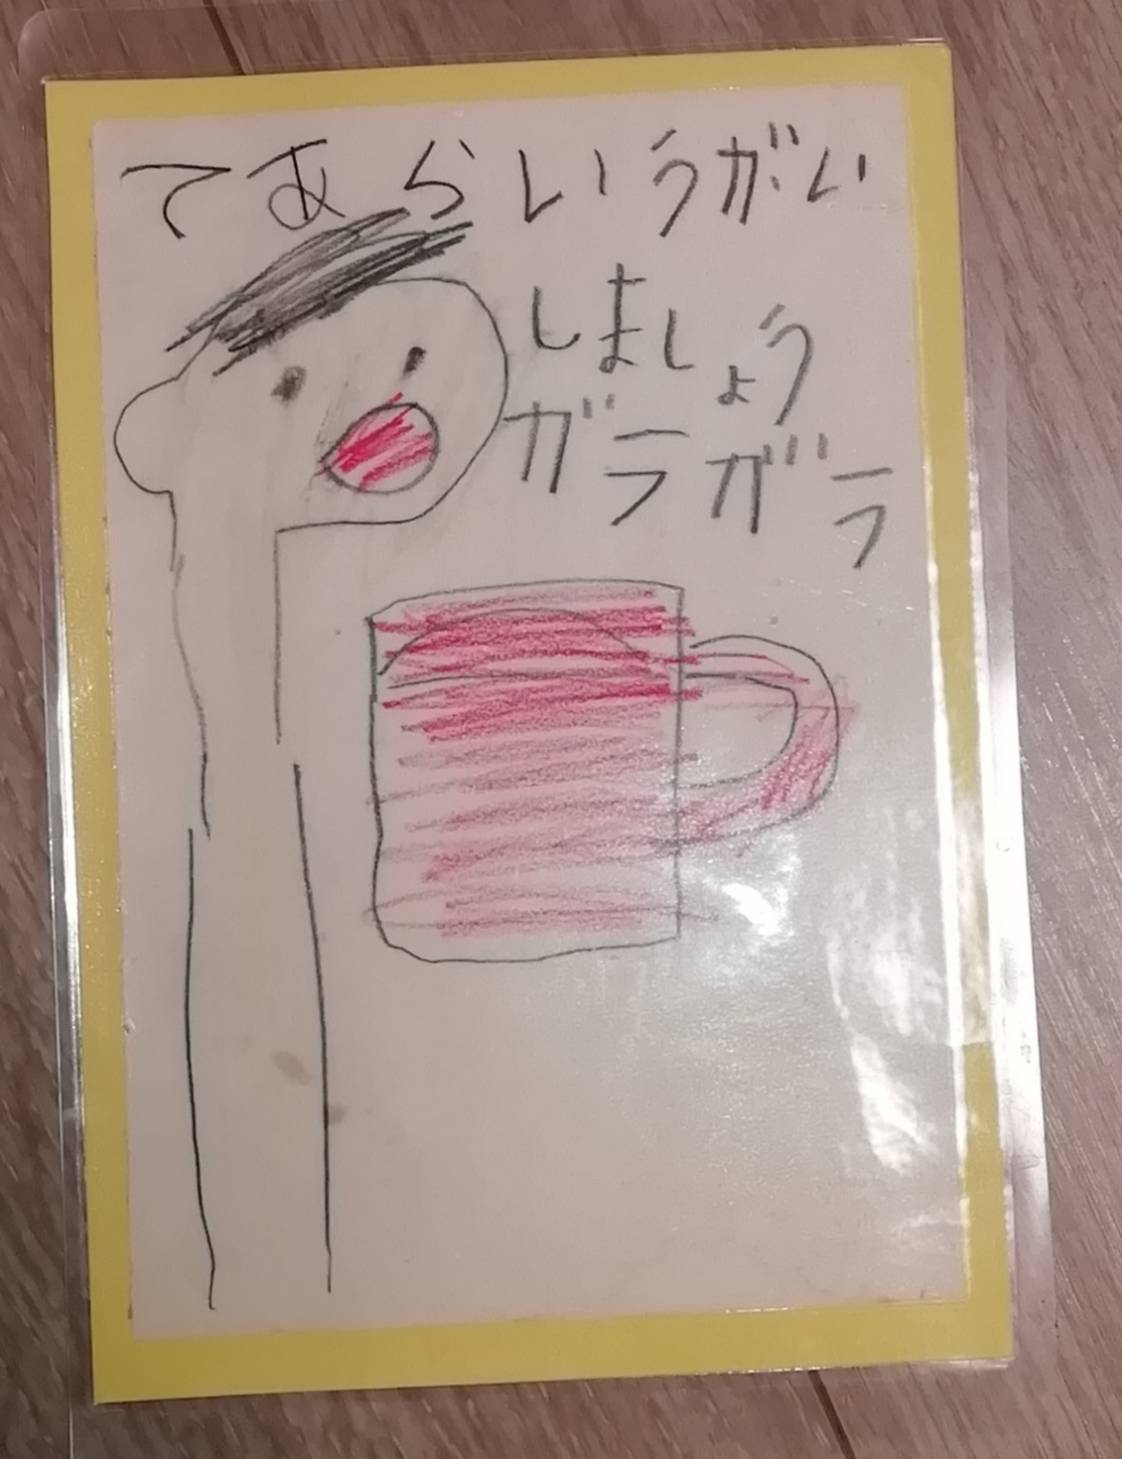 てあらいうがい
しましょう
ガラガラ